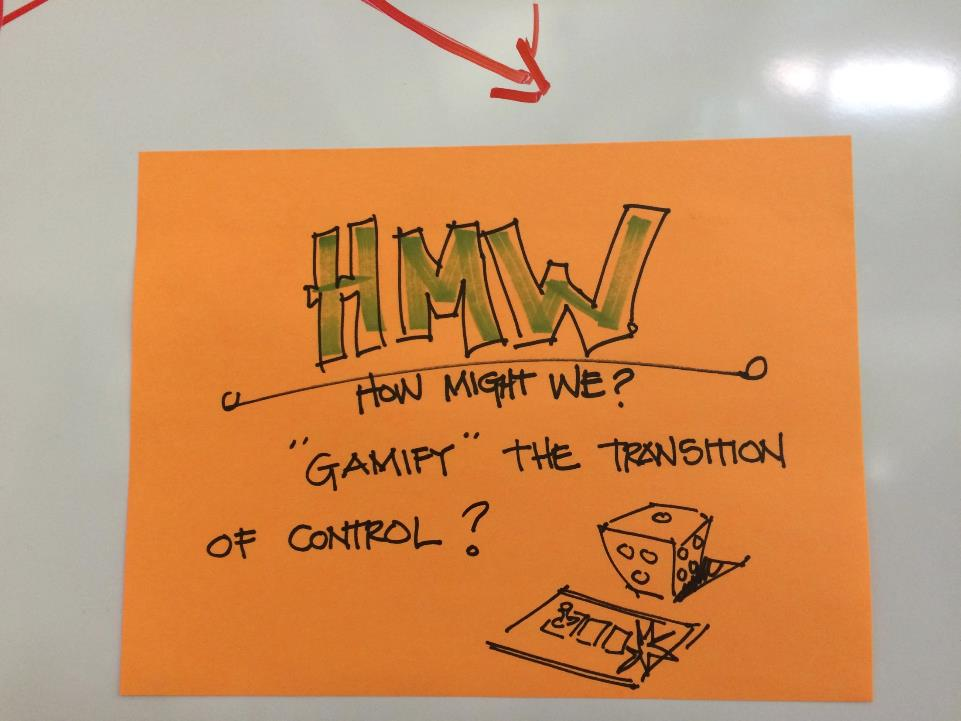 HMW
HOW MIGHT WE?
"GAMIFY" THE TRANSITION
OF CONTROL?